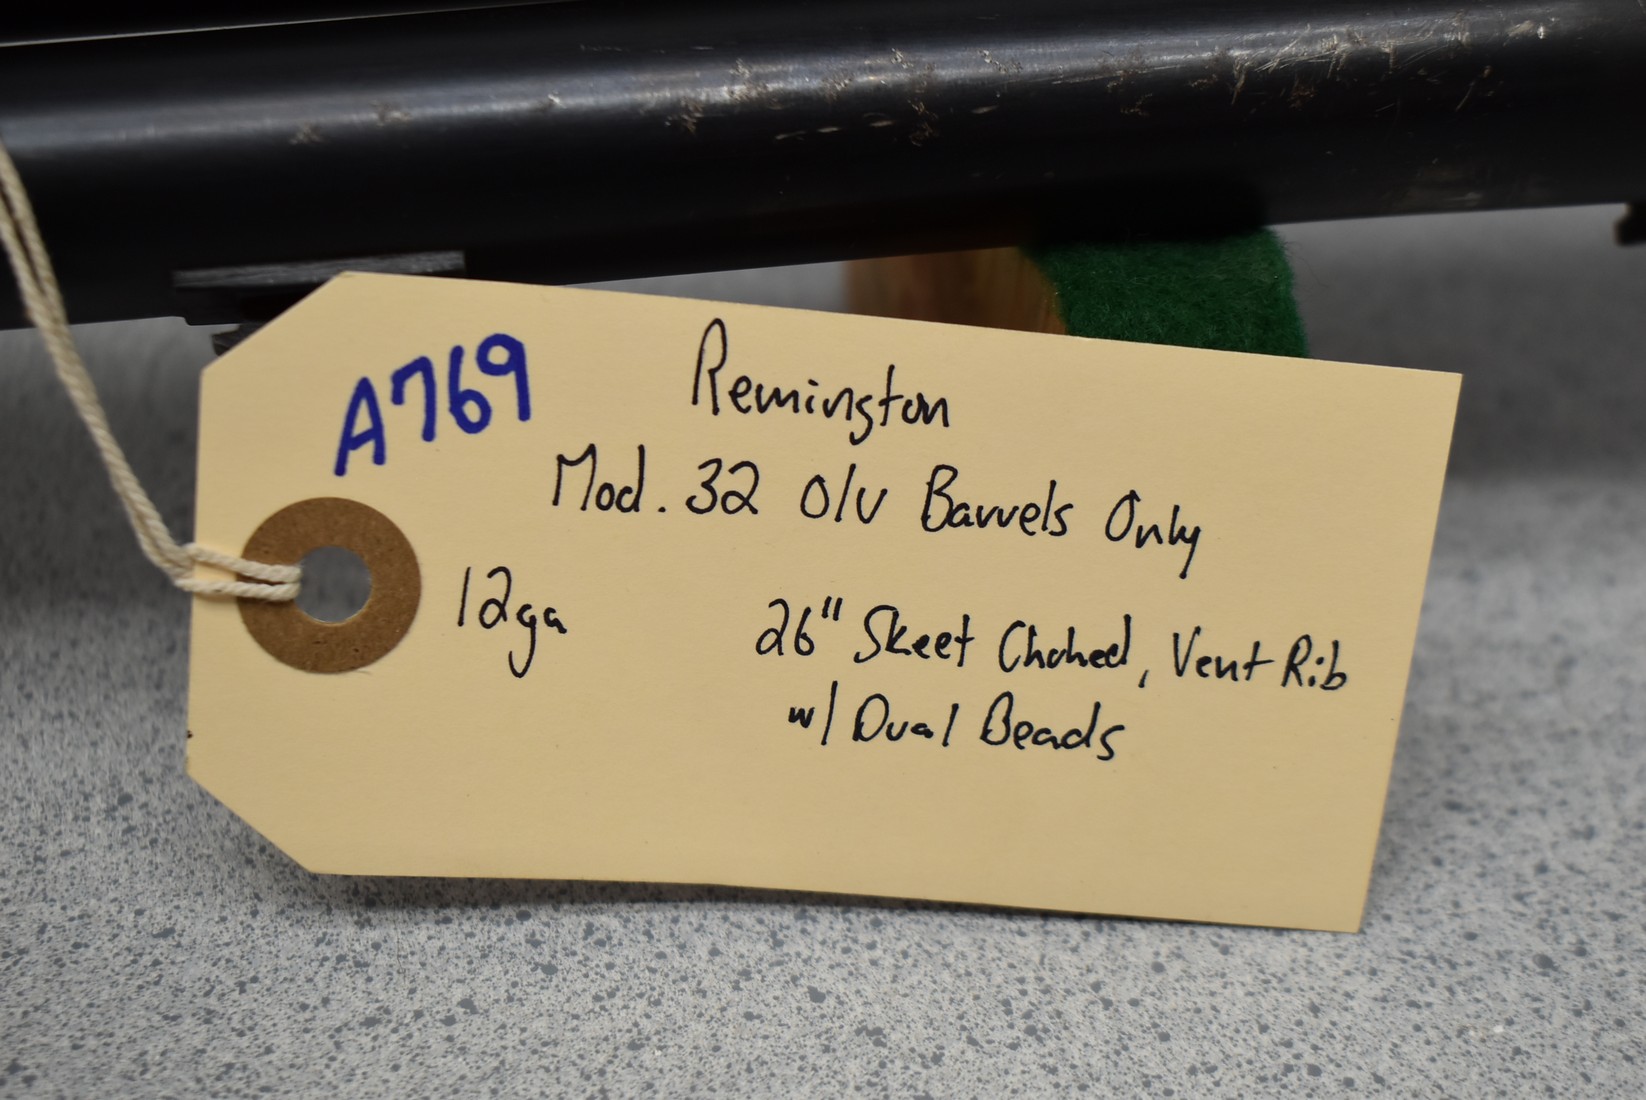 A769
Remington
Mod. 32 O/U Barrels Only
12ga
26" Skeet Choked, Vent Rib
w/ Dual Beads